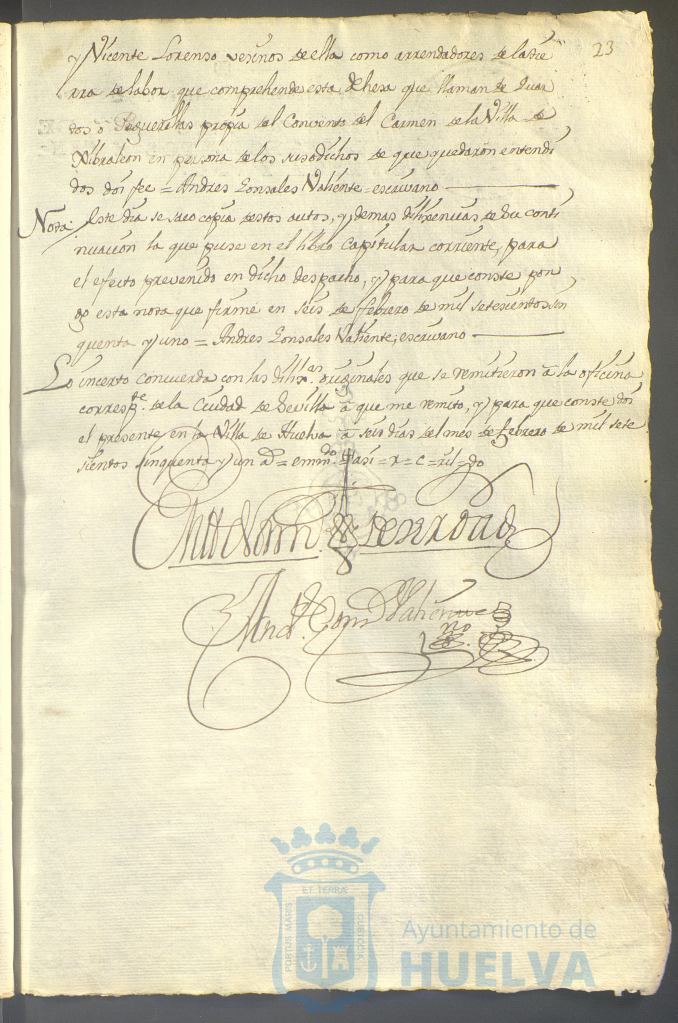 23
y Vicente Lorenso vesinos de ella como arrendadores de la tie
rra de labor que comprehende esta dehesa que llaman de
propia del Convento del Carmen de la Villa de
Xibraleon en persona de los susodichos de que quedaron entendi
dos doi fee = Andres Gonsales Valiente = escrivano
Nota: Este dia se saco copia de estos autos, y demas dilixencias de su conti
nuacion la que puse en el libro capitular corriente, para
el efecto prevenido en dicho despacho, y para que conste pon
go esta nota que firmé en seis de febrero de mil setesientos sin
quenta y uno = Andres Gonsales Valiente, escrivano
Lo incerto concuerda con las dilixas. originales que se remitieron a la oficina
corresp.te de la Ciudad de Sevilla a que me remito, y para que conste doi
el presente en la Villa de Huelva a seis dias del mes de febrero de mil sete
sientos sinquenta y un a.s = emm.do
de verdad
And.s Gonz Valiente
ess.no
PORTUS MARIS ET TERRÆ CUSTODIA
Ayuntamiento de
HUELVA